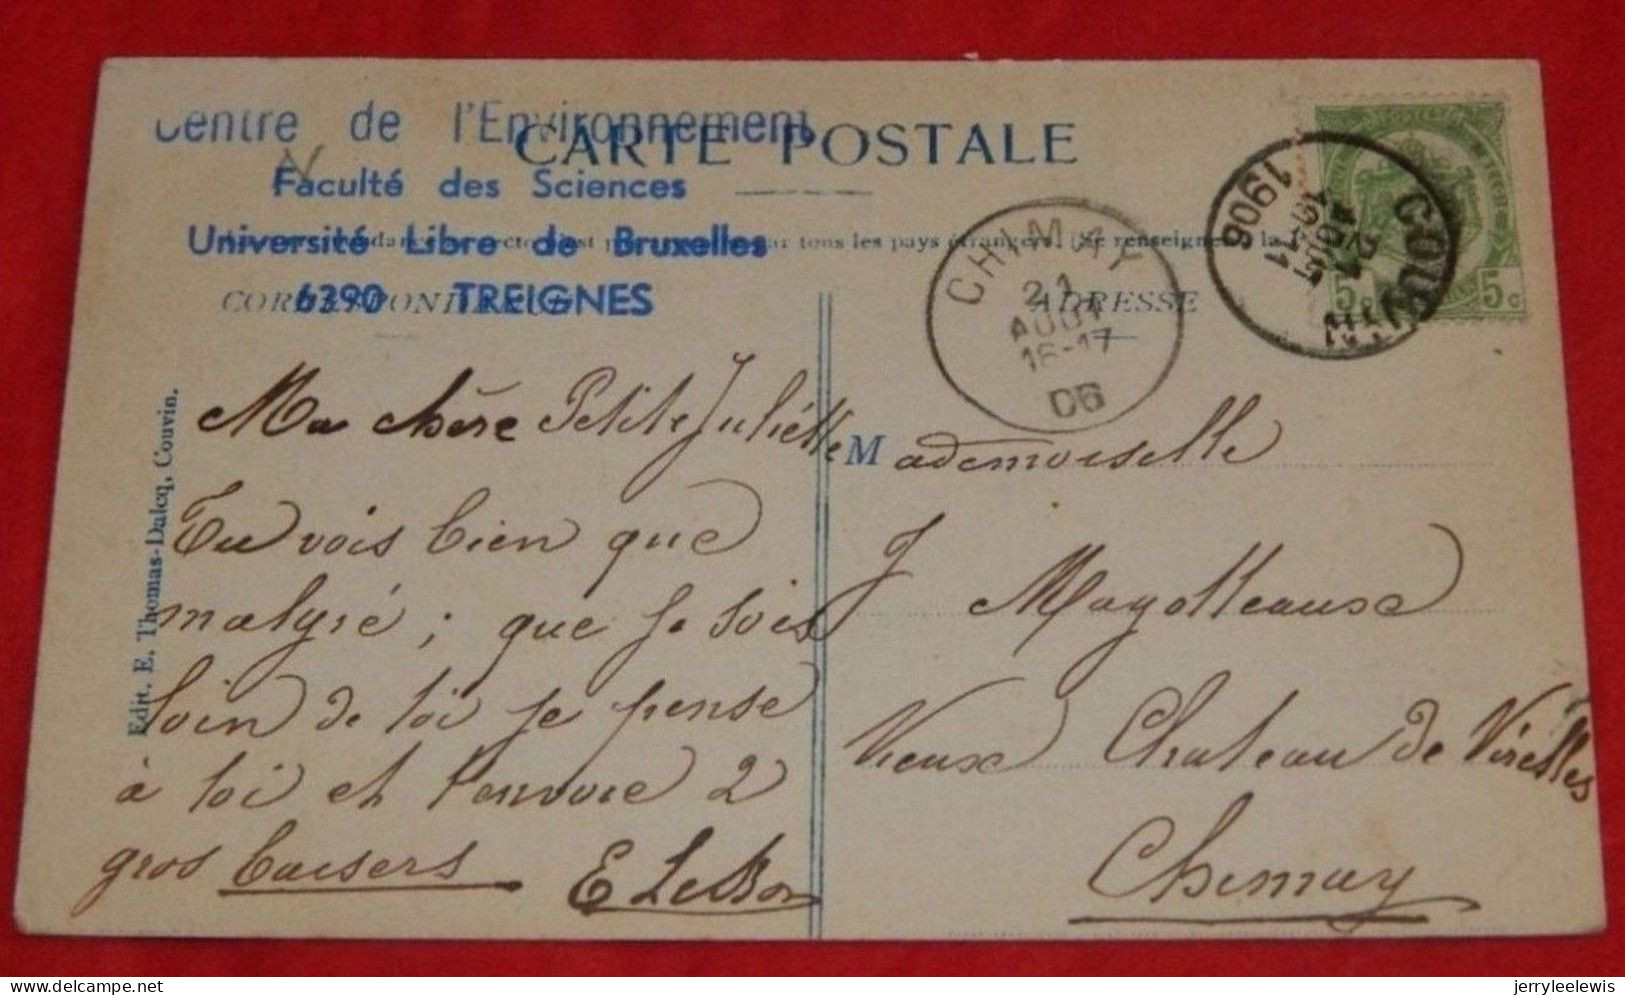 Centre de l'Environnement
CARTE POSTALE
Faculté des Sciences
Université Libre de Bruxelles
tous les pays étrangers. (Se renseigner à la
6390 TREIGNES
CORRESPONDANCE
ADRESSE
COUVIN
1906
AOUT
5c 5c
CHIMAY
21
AOUT
16-17
06
Edit. E. Thomas-Dalcq, Couvin.
Ma chère Petite Juliette
Tu vois bien que
malgré ; que je sois
loin de toi je pense
à toi et t'envoie 2
gros baisers
Mademoiselle
J Magotteaux
Vieux Chateau de Virelles
Chimay
jerryleelewis